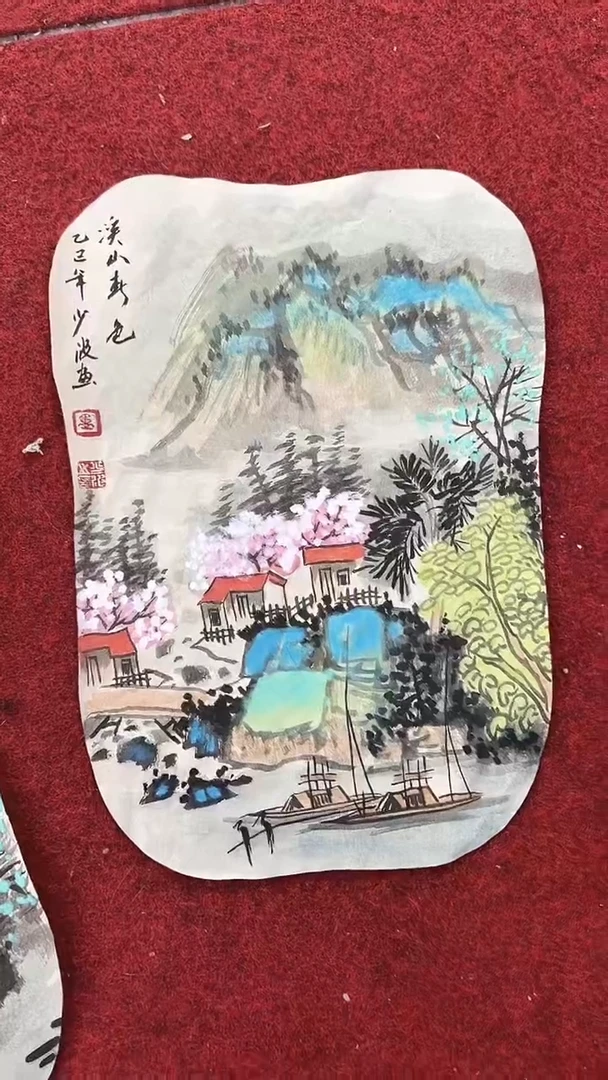 溪山春色
乙巳年少波画